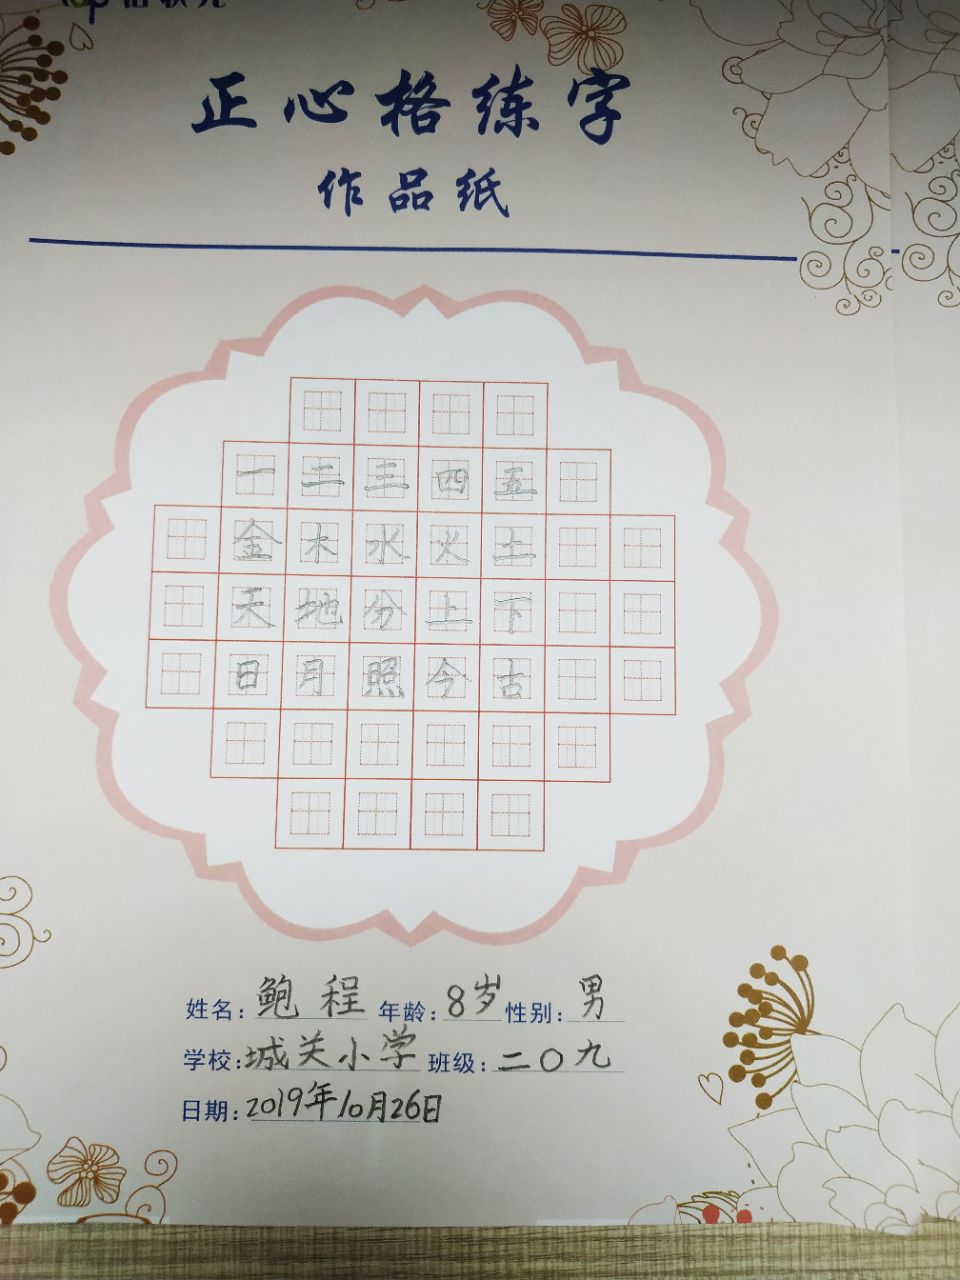 正心格练字
作品纸
一二三四五
金木水火土
天地分上下
日月照今古
姓名：鲍程 年龄：8岁 性别：男
学校：城关小学 班级：二〇九
日期：2019年10月26日